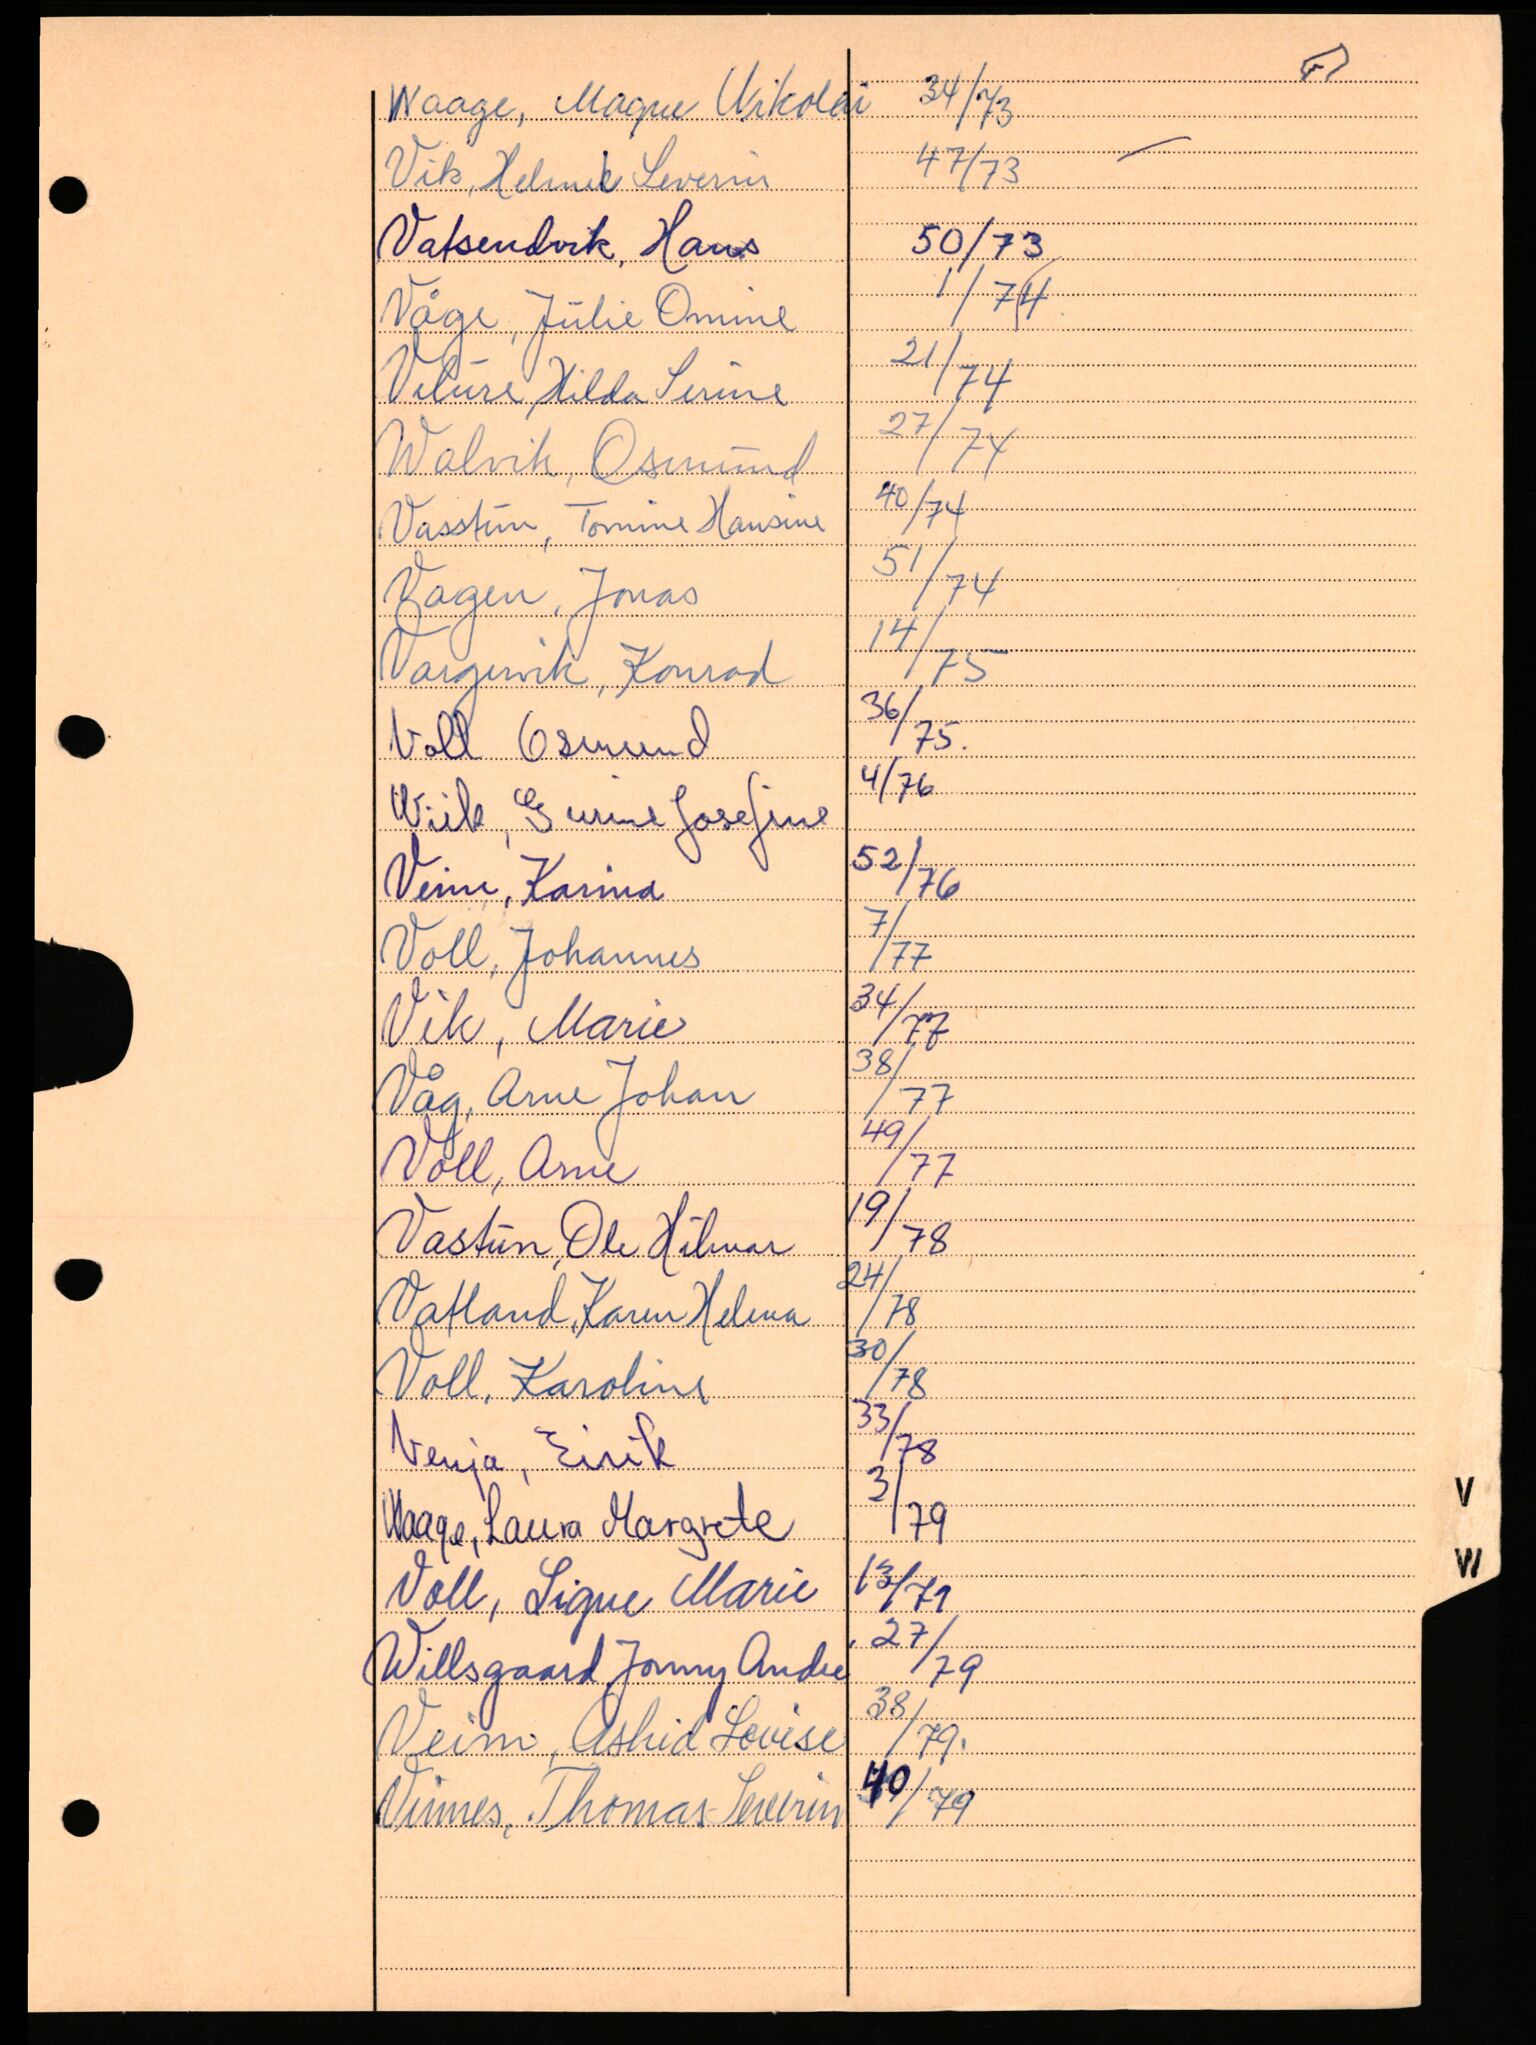 Waage, Magne Nikolai 34/73
Vik, Helmik Severin 47/73
Vatsendvik, Hans 50/73
Våge, Julie Omine 1/74
Veture, Hilda Serine 21/74
Walvik, Osmund 27/74
Vasstun, Tomine Hansine 40/74
Vagen, Jonas 51/74
Vargervik, Konrad 14/75
Voll Osmund 36/75.
Wiik, Gurine Josefine 4/76
Veim, Karina 52/76
Voll, Johannes 7/77
Vik, Marie 34/77
Våg, Arne Johan 38/77
Voll, Arne 49/77
Vastun, Ole Hilmar 19/78
Vatland, Karen Helena 24/78
Voll, Karoline 30/78
Venja, Eirik 33/78
Waage, Laura Margrete 3/79
V
Voll, Signe Marie 13/79
W
Willsgaard, Jonny Andre 27/79
Veim, Astrid Lovise 38/79.
Vinnes, Thomas Severin 40/79